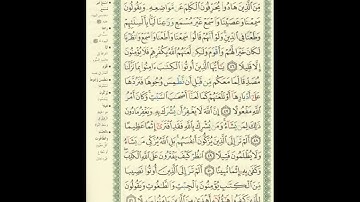 مِّنَ ٱلَّذِينَ هَادُوا۟ يُحَرِّفُونَ ٱلْكَلِمَ عَن مَّوَاضِعِهِۦ وَيَقُولُونَ
سَمِعْنَا وَعَصَيْنَا وَٱسْمَعْ غَيْرَ مُسْمَعٍ وَرَٰعِنَا لَيًّۢا بِأَلْسِنَتِهِمْ
وَطَعْنًا فِى ٱلدِّينِ وَلَوْ أَنَّهُمْ قَالُوا۟ سَمِعْنَا وَأَطَعْنَا وَٱسْمَعْ وَٱنظُرْنَا
لَكَانَ خَيْرًا لَّهُمْ وَأَقْوَمَ وَلَٰكِن لَّعَنَهُمُ ٱللَّهُ بِكُفْرِهِمْ فَلَا يُؤْمِنُونَ
إِلَّا قَلِيلًا ٤٦ يَٰٓأَيُّهَا ٱلَّذِينَ أُوتُوا۟ ٱلْكِتَٰبَ ءَامِنُوا۟ بِمَا نَزَّلْنَا
مُصَدِّقًا لِّمَا مَعَكُم مِّن قَبْلِ أَن نَّطْمِسَ وُجُوهًا فَنَرُدَّهَا
عَلَىٰٓ أَدْبَارِهَآ أَوْ نَلْعَنَهُمْ كَمَا لَعَنَّآ أَصْحَٰبَ ٱلسَّبْتِ وَكَانَ أَمْرُ
ٱللَّهِ مَفْعُولًا ٤٧ إِنَّ ٱللَّهَ لَا يَغْفِرُ أَن يُشْرَكَ بِهِۦ وَيَغْفِرُ مَا دُونَ
ذَٰلِكَ لِمَن يَشَآءُ وَمَن يُشْرِكْ بِٱللَّهِ فَقَدِ ٱفْتَرَىٰٓ إِثْمًا عَظِيمًا
٤٨ أَلَمْ تَرَ إِلَى ٱلَّذِينَ يُزَكُّونَ أَنفُسَهُم بَلِ ٱللَّهُ يُزَكِّى مَن يَشَآءُ
وَلَا يُظْلَمُونَ فَتِيلًا ٤٩ ٱنظُرْ كَيْفَ يَفْتَرُونَ عَلَى ٱللَّهِ ٱلْكَذِبَ
وَكَفَىٰ بِهِۦٓ إِثْمًا مُّبِينًا ٥٠ أَلَمْ تَرَ إِلَى ٱلَّذِينَ أُوتُوا۟ نَصِيبًا
مِّنَ ٱلْكِتَٰبِ يُؤْمِنُونَ بِٱلْجِبْتِ وَٱلطَّٰغُوتِ وَيَقُولُونَ
لِلَّذِينَ كَفَرُوا۟ هَٰٓؤُلَآءِ أَهْدَىٰ مِنَ ٱلَّذِينَ ءَامَنُوا۟ سَبِيلًا ٥١